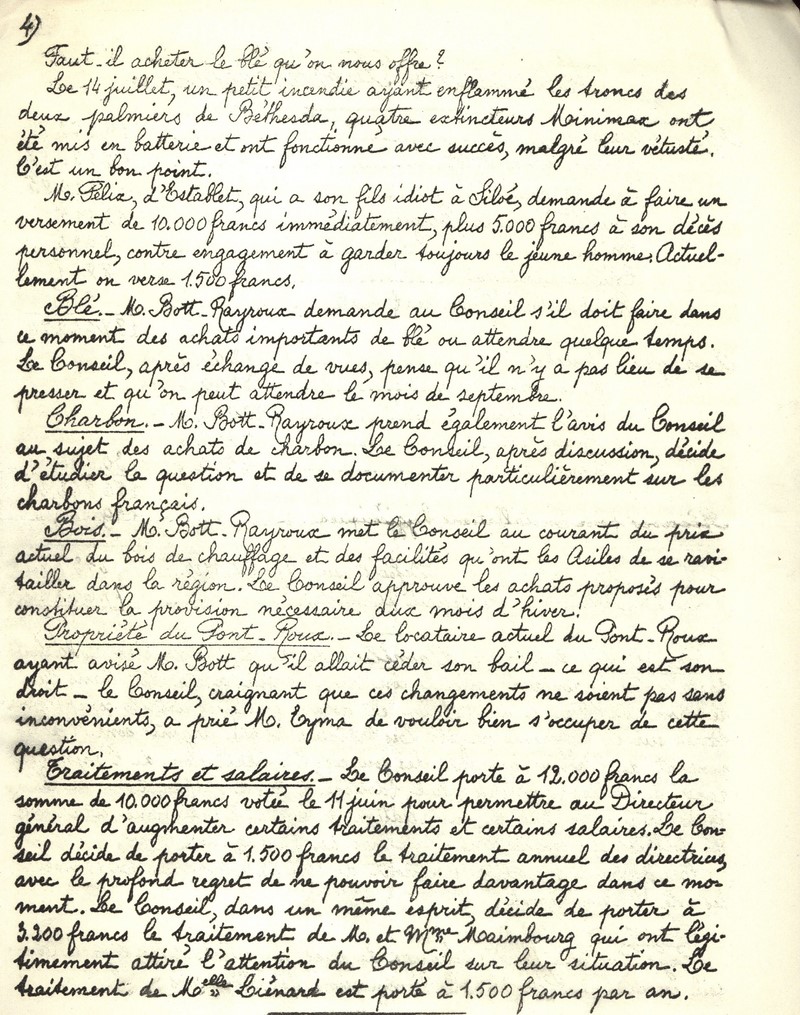 4)
Faut-il acheter le blé qu'on nous offre?
Le 14 juillet, un petit incendie ayant enflammé les troncs des
deux palmiers de Béthesda, quatre extincteurs Minimax ont
été mis en batterie et ont fonctionné avec succès, malgré leur vétusté.
C'est un bon point.
M. Félix, d'Establet, qui a son fils idiot à Siloé, demande à faire un
versement de 10.000 francs immédiatement, plus 5.000 francs à son décès
personnel, contre engagement à garder toujours le jeune homme. Actuel-
lement on verse 1.500 francs.
Blé.- M. Bott-Rayroux demande au Conseil s'il doit faire dans
ce moment des achats importants de blé ou attendre quelque temps.
Le Conseil, après échange de vues, pense qu'il n'y a pas lieu de se
presser et qu'on peut attendre le mois de septembre.
Charbon.- M. Bott-Rayroux prend également l'avis du Conseil
au sujet des achats de charbon. Le Conseil, après discussion, décide
d'étudier la question et de se documenter particulièrement sur les
charbons français.
Bois.- M. Bott-Rayroux met le Conseil au courant du prix
actuel du bois de chauffage et des facilités qu'ont les Asiles de se ravi-
tailler dans la région. Le Conseil approuve les achats proposés pour
constituer la provision nécessaire aux mois d'hiver.
Propriété du Pont-Roux.- Le locataire actuel du Pont-Roux
ayant avisé M. Bott qu'il allait céder son bail - ce qui est son
droit - le Conseil, craignant que ces changements ne soient pas sans
inconvénients, a prié M. Eyma de vouloir bien s'occuper de cette
question.
Traitements et salaires.- Le Conseil porte à 12.000 francs la
somme de 10.000 francs votée le 11 juin pour permettre au Directeur
général d'augmenter certains traitements et certains salaires. Le Con-
seil décide de porter à 1.500 francs le traitement annuel des directrices,
avec le profond regret de ne pouvoir faire davantage dans ce mo-
ment. Le Conseil, dans un même esprit, décide de porter à
3.200 francs le traitement de M. et Mme Maimbourg qui ont légi-
timement attiré l'attention du Conseil sur leur situation. Le
traitement de Melle Liénard est porté à 1.500 francs par an.